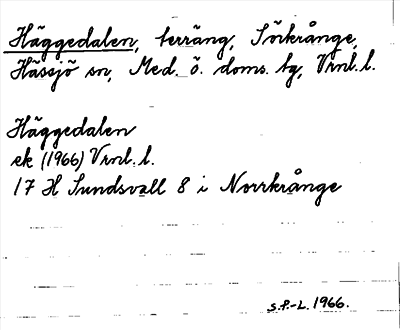 Häggedalen, terräng, Sörkrånge,
Hässjö sn, Med. ö. doms. tg, Vrnl. l.
Häggedalen
ek (1966) Vrnl. l.
17 H Sundsvall 8 i Norrkrånge
S.P.-L. 1966.